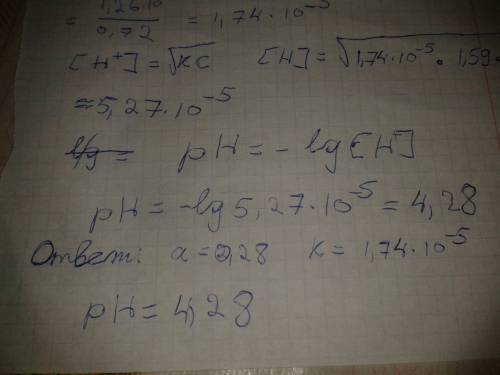 = 1,26·10 / 0,72 = 1,74·10⁻⁵
[H⁺] = √KC [H] = √1,74·10⁻⁵ · 1,59·
≈ 5,27·10⁻⁵
pH = -lg[H]
pH = -lg 5,27·10⁻⁵ = 4,28
Ответ: α = 0,28 K = 1,74·10⁻⁵
pH = 4,28